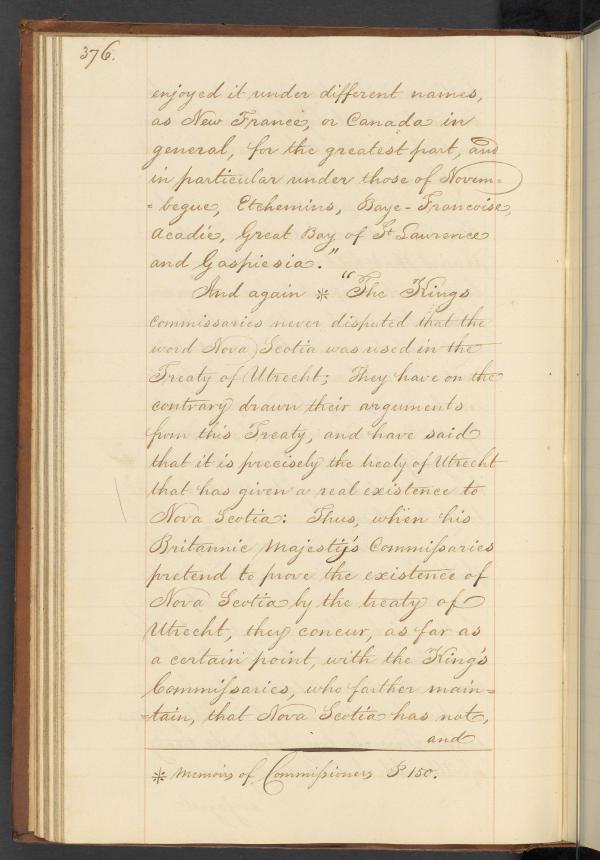 376.
enjoyed it under different names,
as New France, or Canada in
general, for the greatest part, and
in particular under those of Novem=
=begue, Etchemins, Baye-Francoise,
Acadie, Great Bay of St Lawrence
and Gaspiesia."
And again * "The Kings
Commissaries never disputed that the
word Nova Scotia was used in the
Treaty of Utrecht; They have on the
contrary drawn their arguments
from this Treaty, and have said
that it is precisely the treaty of Utrecht
that has given a real existence to
Nova Scotia: Thus, when his
Britannic Majesty's Commissaries
pretend to prove the existence of
Nova Scotia by the treaty of
Utrecht, they concur, as far as
a certain point, with the King's
Commissaries, who farther main=
=tain, that Nova Scotia has not,
and
* Memoirs of Commissioners P 150.